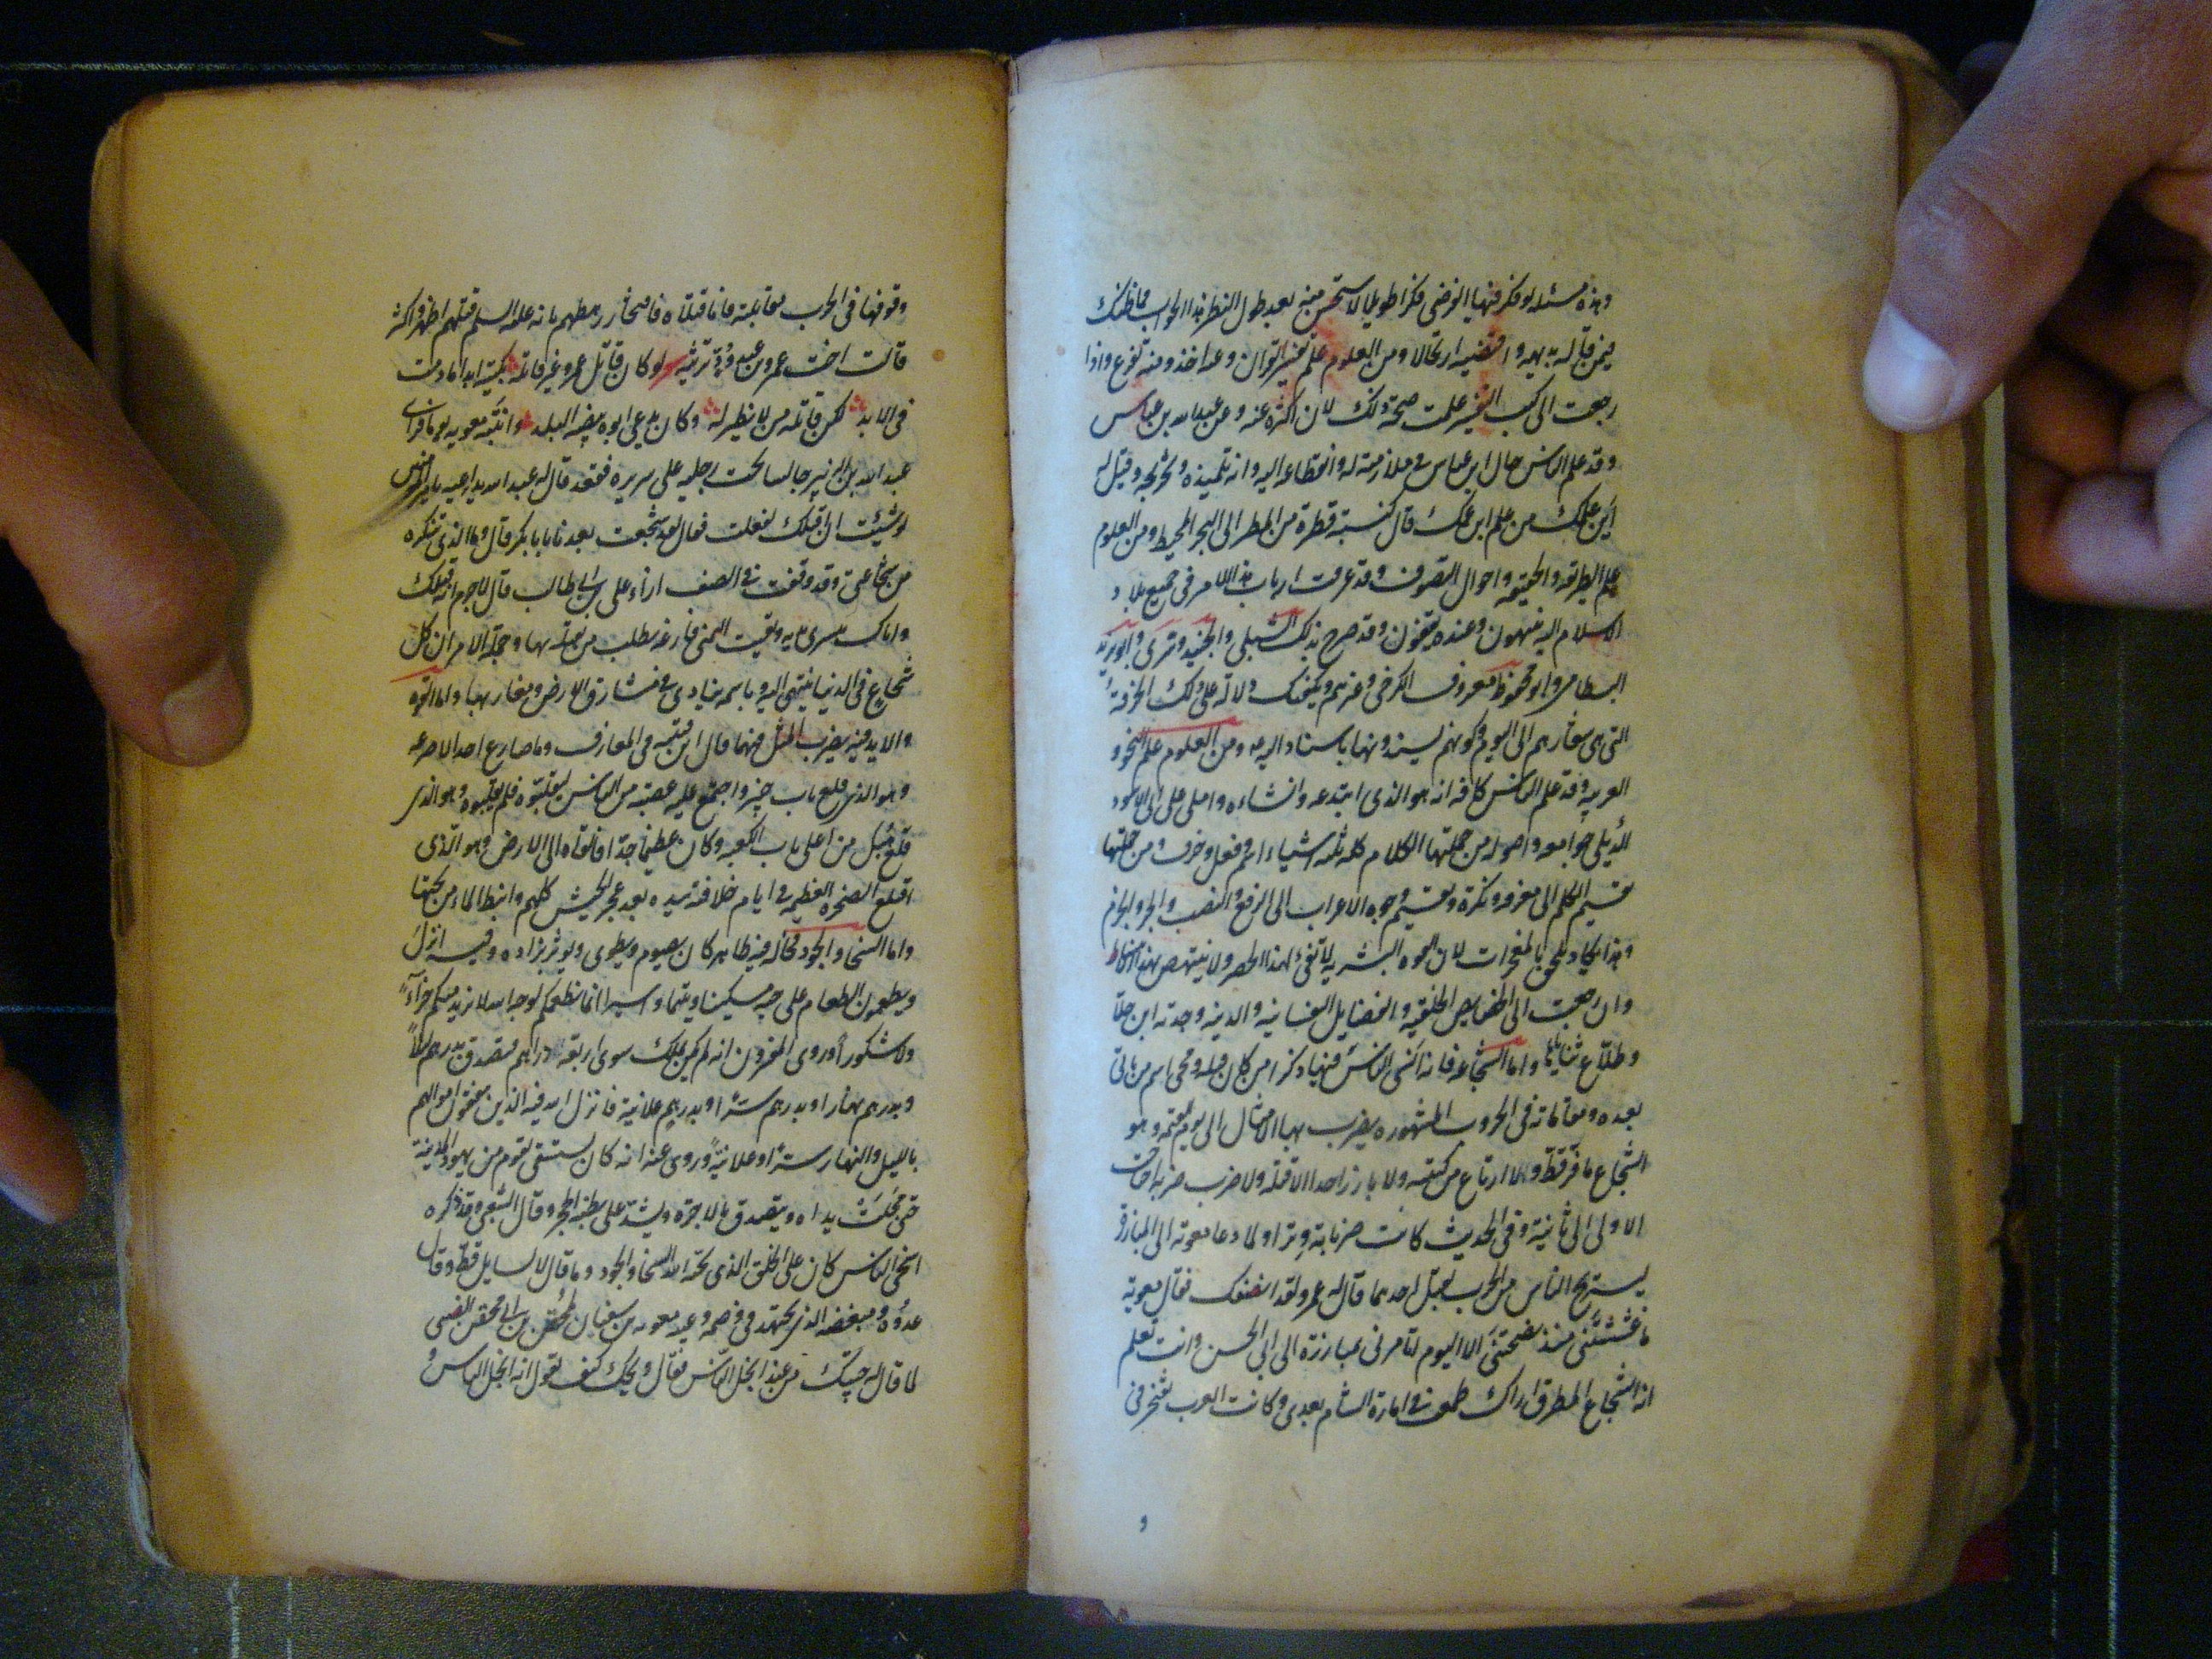 وهذه مسئله لو فكر فيها الفرضى فكرا طويلا لاستحسن منه بعد طول النظر هذا الجواب فما ظنك
بمن قاله بديهه واقتضبه ارتجالا ومن العلوم علم تفسير القران وعنه اخذ ومنه تفرع واذا
رجعت الى كتب التفسير علمت صحة ذلك لان اكثره عنه وعن عبد الله بن عباس
وقد علم الناس حال ابن عباس فى ملازمته له وانقطاعه اليه وانه تلميذه وخريجه وقيل له
اين علمك من علم ابن عمك قال كنسبة قطرة من المطر الى البحر المحيط ومن العلوم
علم الطريقه والحقيقه واحوال التصوف وقد عرفت ارباب هذا الامر فى جميع بلاد
الاسلام اليه ينتهون وعنده يقفون وقد صرح بذلك الشبلى والجنيد وسرى وابو يزيد
البسطامى وابو محفوظ معروف الكرخى وغيرهم ويكفيك دلالة على ذلك الخرقة
التى هى شعارهم الى اليوم وكونهم يسندونها باسناد اليه ومن العلوم علم النحو و
العربيه وقد علم الناس كافه انه هو الذى ابتدعه وانشاءه واملى على ابى الاسود
الدئلى جوامعه واصوله من جملتها الكلام كله ثلثه اشياء اسم وفعل وحرف ومن جملتها
تقسيم الكلم الى معرفه ونكرة وتقسيم وجوه الاعراب الى الرفع والنصب والجر والجزم
وهذا يكاد يلحق بالمعجزات لان القوه البشريه لا تفى لهذا الحصر ولا ينتهض بهذا الاستنباط
وان رجعت الى الخصايص الخلقيه والفضايل النفسانيه والدينيه وجدته ابن جلا
وطلاع ثناياها واما الشجاعه فانه انسى الناس فيها ذكر من كان قبله ومحى اسم من ياتى
بعده ومقاماته فى الحروب المشهوره يضرب بها الامثال الى يوم القيمه وهو
الشجاع ما فر قط ولا ارتاع من كتيبه ولا بارز احدا الا قتله ولا ضرب ضربة فاحتاجت
الاولى الى ثانية وفى الحديث كانت ضرباته وترا ولما دعا معوية الى المبارزة
ليستريح الناس من الحرب بقتل احدهما قال له عمرو لقد انصفك فقال معوية
ما غششتنى منذ نصحتنى الا اليوم اتامرنى بمبارزة ابى الحسن وانت تعلم
انه الشجاع المطرق اراك طمعت فى امارة الشام بعدى وكانت العرب تفتخر فى
و
وقوفها فى الحرب مقابلته فاما قتلاه فافتخار رهطهم بانه عليه السلم قتلهم اظهر واكثر
قالت اخت عمرو بن عبد ود ترثيه لو كان قاتل عمرو غير قاتله بكيته ابدا ما دمت
فى الابد لكن قاتله من لا نظير له وكان يدعى ابوه بيضه البلد وانتبه معويه يوما فراى
عبد الله بن الزبير جالسا تحت رجليه على سريره فقعد فقال له عبد الله يداعبه يا امير المؤمنين
لو شئت ان اقتلك لفعلت فقال لقد شجعت بعدنا يا ابا بكر قال وما الذى تنكره
من شجاعتى وقد وقفت فى الصف ازاء على بن ابى طالب قال لا جرم انه قتلك
واباك بيسرى يديه وبقيت اليمنى فارغه يطلب من يقتله بها وجملة الامر ان كل
شجاع فى الدنيا ينتهى اليه وباسمه ينادى فى مشارق الارض ومغاربها واما القوه
والايد فبه يضرب المثل فيهما قال ابن قتيبه فى المعارف وما صارع احدا الا صرعه
وهو الذى قلع باب خيبر واجتمع عليه عصبة من الناس ليقلبوه فلم يقلبوه وهو الذى
قلع هبل من اعلى باب الكعبه وكان عظيما جدا فالقاه الى الارض وهو الذى
اقتلع الصخره العظيمه فى ايام خلافته بيده بعد عجز الجيش كلهم وانبط الماء من تحتها
واما السخا والجود فحاله فيه ظاهر كان يصوم ويطوى ويؤثر بزاده وفيه انزل
ويطعمون الطعام على حبه مسكينا ويتيما واسيرا انما نطعمكم لوجه الله لا نريد منكم جزآء
ولا شكورا وروى المفسرون انه لم يكن يملك سوى اربعة دراهم فتصدق بدرهم ليلا
وبدرهم نهارا وبدرهم سرا وبدرهم علانية فانزل الله فيه الذين ينفقون اموالهم
بالليل والنهار سرا وعلانية وروى عنه انه كان يستقى لقوم من يهود المدينة
حتى مجلت يداه ويتصدق بالاجرة ويشد على بطنه الحجر وقال الشعبى وقد ذكره
اسخى الناس كان على الخلق الذى يحبه الله السخا والجود وما قال لا لسايل قط وقال
عدوه ومبغضه الذى يجتهد فى وصمه وعيبه معويه بن سفيان لمحقن بن ابى محقن الضبى
لما قال له جئتك من عند ابخل الناس فقال ويحك كيف تقول انه ابخل الناس و